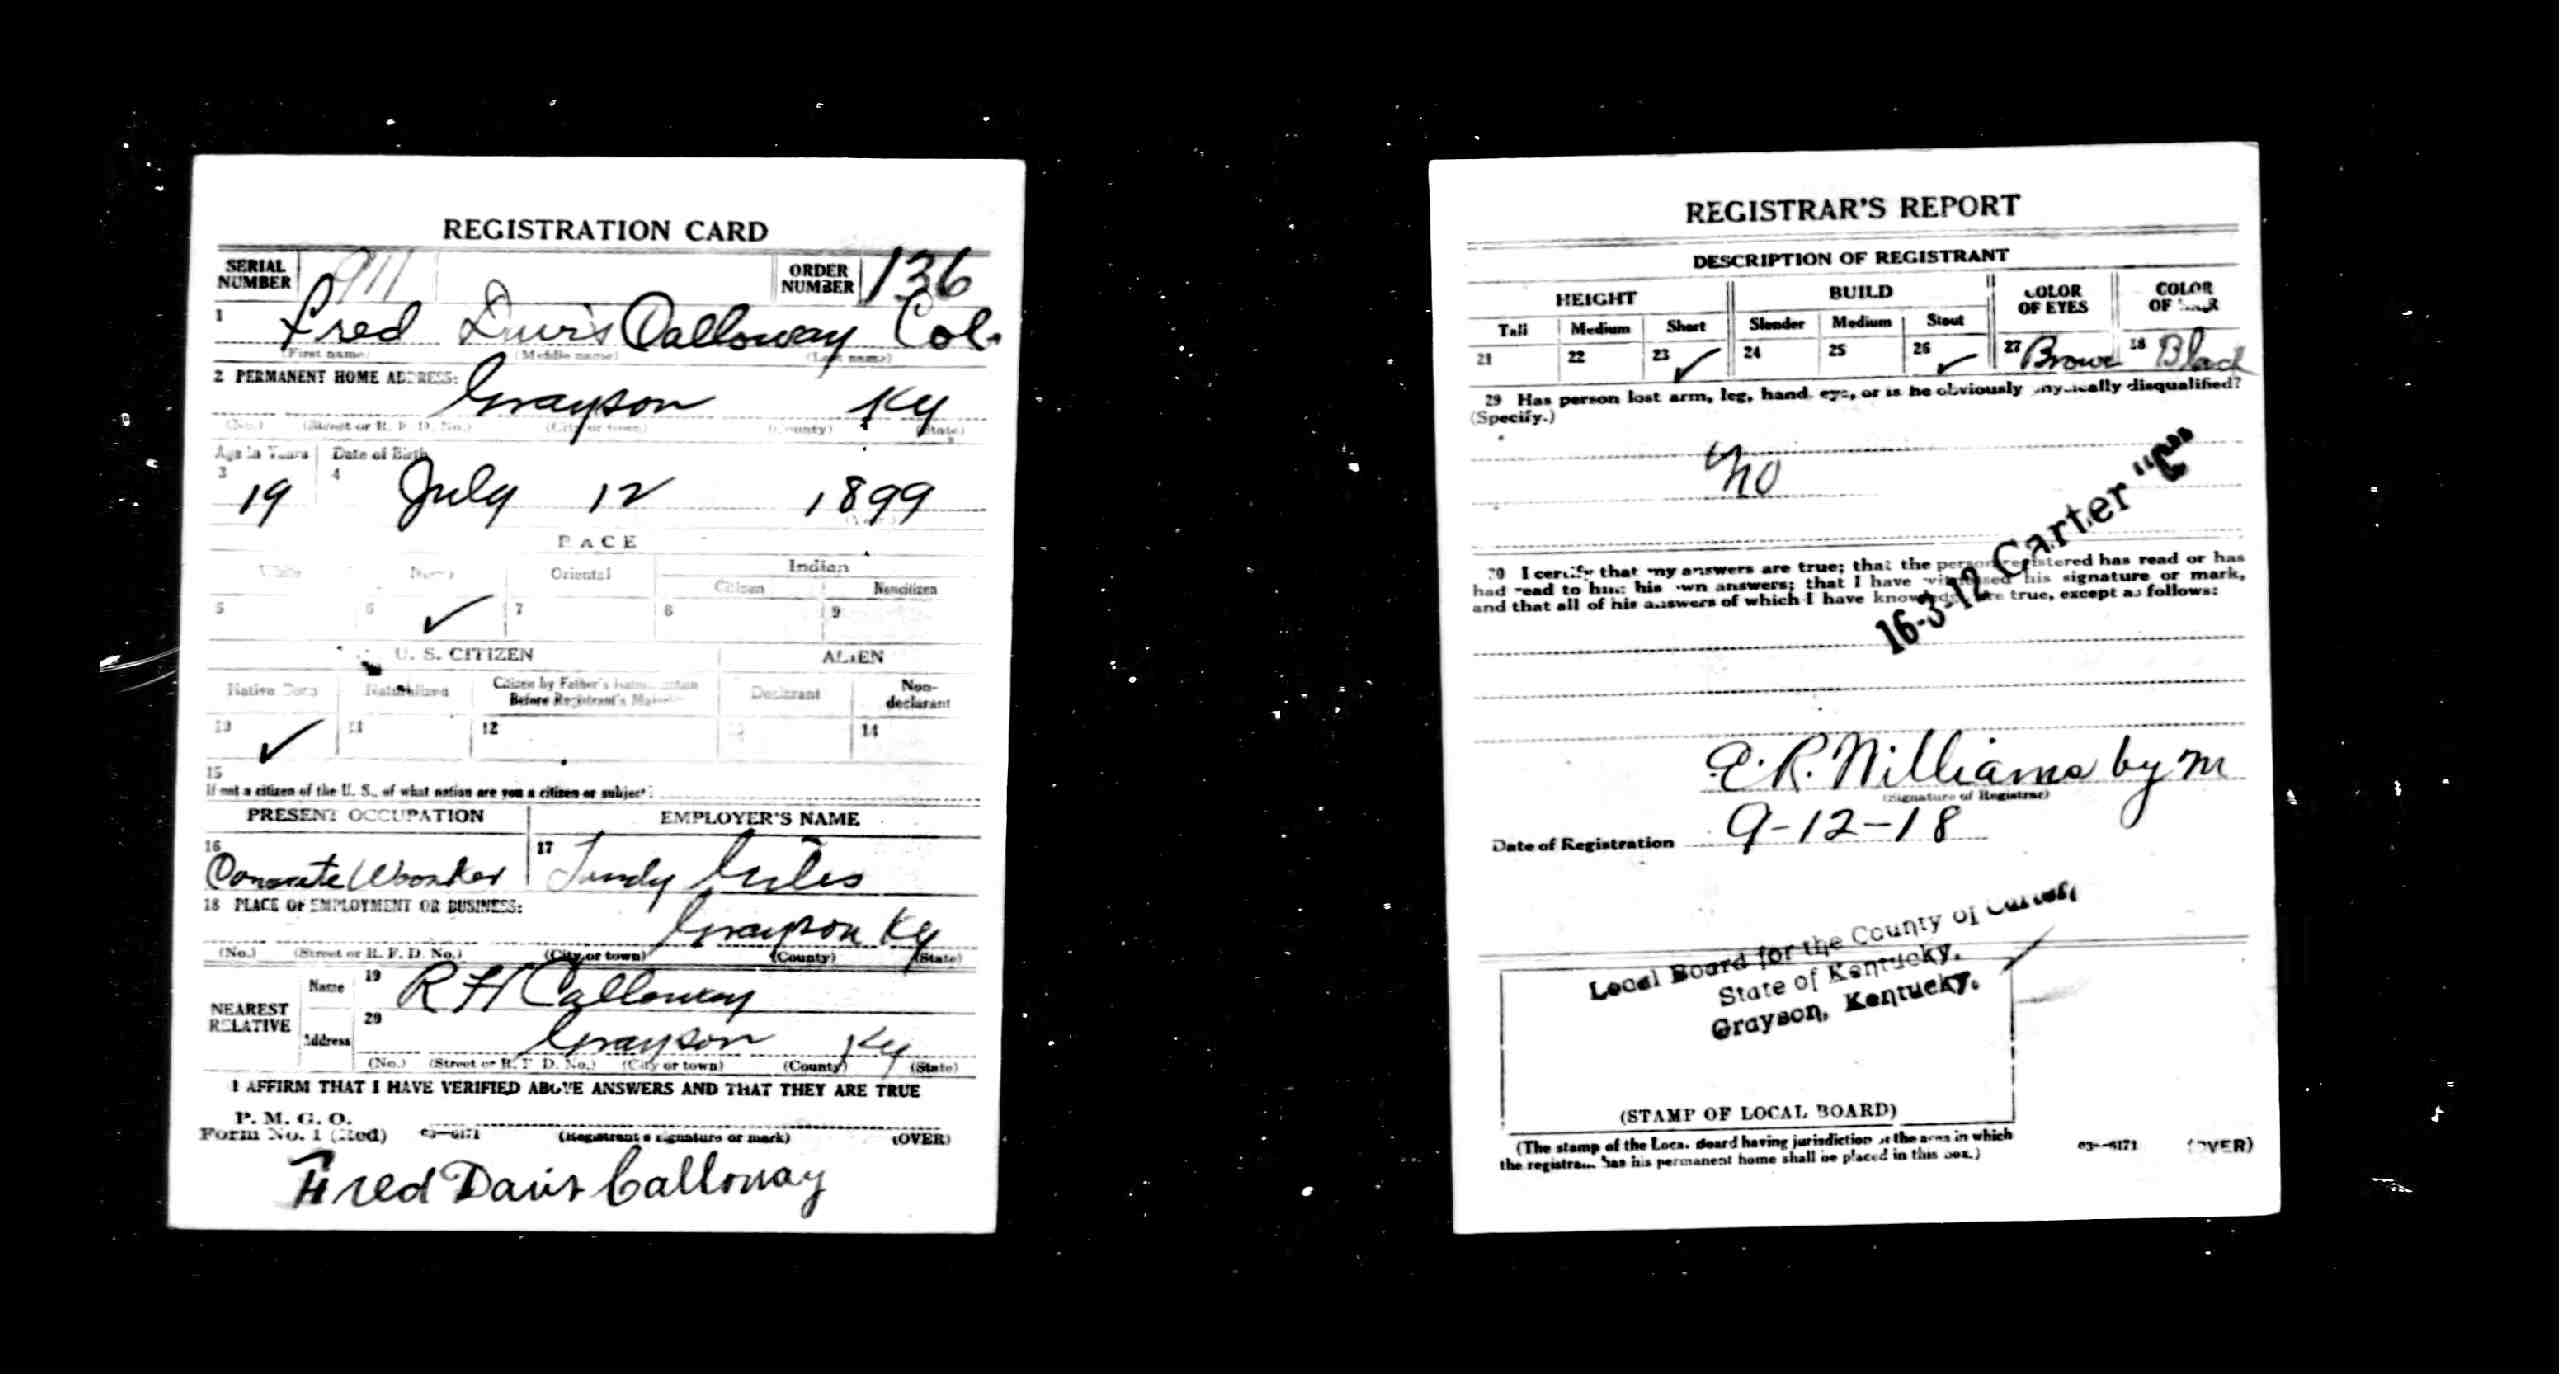 REGISTRATION CARD
SERIAL NUMBER 911 ORDER NUMBER 136
1 Fred Davis Calloway Col.
(First name) (Middle name) (Last name)
2 PERMANENT HOME ADDRESS:
Grayson Ky
(No.) (Street or R. F. D. No.) (City or town) (County) (State)
Age in Years Date of Birth
3 19 4 July 12 1899
(Year)
RACE
White Negro Oriental Indian
Citizen Noncitizen
5 6 ✓ 7 8 9
U. S. CITIZEN ALIEN
Native Born Naturalized Citizen by Father's Naturalization Before Registrant's Majority Declarant Non-declarant
10 ✓ 11 12 13 14
15
If not a citizen of the U. S., of what nation are you a citizen or subject?
PRESENT OCCUPATION EMPLOYER'S NAME
16 Concrete Worker 17
18 PLACE OF EMPLOYMENT OR BUSINESS:
Grayson Ky
(No.) (Street or R. F. D. No.) (City or town) (County) (State)
NEAREST RELATIVE Name 19 R H Calloway
Address 20 Grayson Ky
(No.) (Street or R. F. D. No.) (City or town) (County) (State)
I AFFIRM THAT I HAVE VERIFIED ABOVE ANSWERS AND THAT THEY ARE TRUE
P. M. G. O.
Form No. 1 (Red) 03—6171 (Registrant's signature or mark) (OVER)
Fred Davis Calloway
REGISTRAR'S REPORT
DESCRIPTION OF REGISTRANT
HEIGHT BUILD COLOR OF EYES COLOR OF HAIR
Tall Medium Short Slender Medium Stout
21 22 23 ✓ 24 25 26 ✓ 27 Brown 28 Black
29 Has person lost arm, leg, hand, eye, or is he obviously physically disqualified?
(Specify.)
no
16-3-12 Carter "C"
30 I certify that my answers are true; that the person registered has read or has
had read to him his own answers; that I have witnessed his signature or mark,
and that all of his answers of which I have knowledge are true, except as follows:
E. R. Williams by m
(Signature of Registrar)
Date of Registration 9-12-18
Local Board for the County of Carter,
State of Kentucky.
Grayson, Kentucky.
(STAMP OF LOCAL BOARD)
(The stamp of the Local Board having jurisdiction of the area in which
the registrant has his permanent home shall be placed in this box.)
03—6171 (OVER)